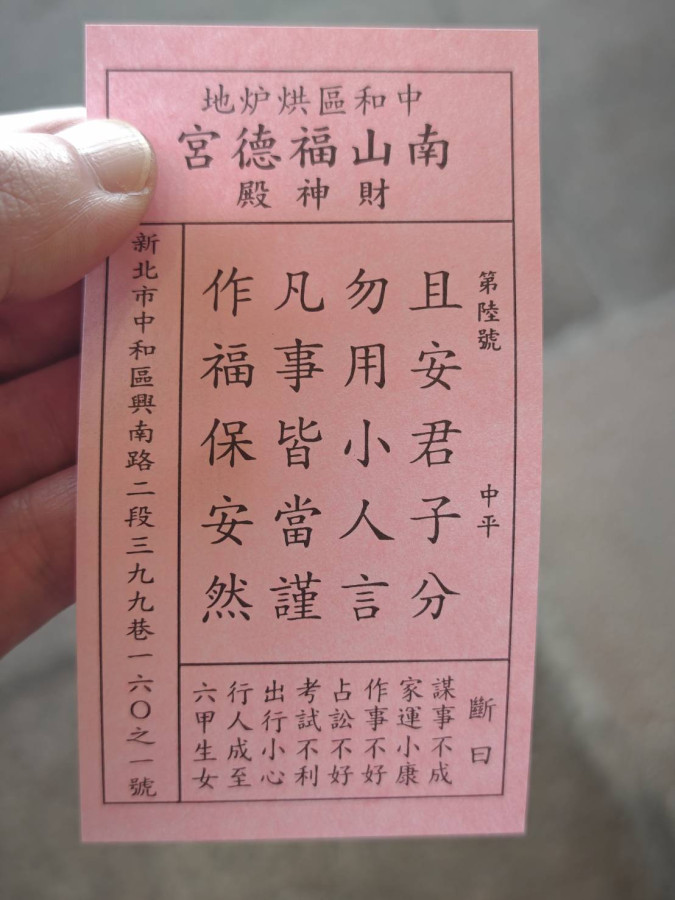 中和區烘炉地
南山福德宮
財神殿
第陸號 中平
且安君子分
勿用小人言
凡事皆當謹
作福保安然
斷曰
謀事不成
家運小康
作事不好
占訟不好
考試不利
出行小心
行人成至
六甲生女
新北市中和區興南路二段三九九巷一六〇之一號